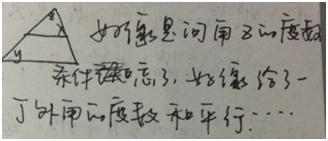 z x
y
好像是问角z的度数
条件忘了,好像给了一
个外角的度数和平行....